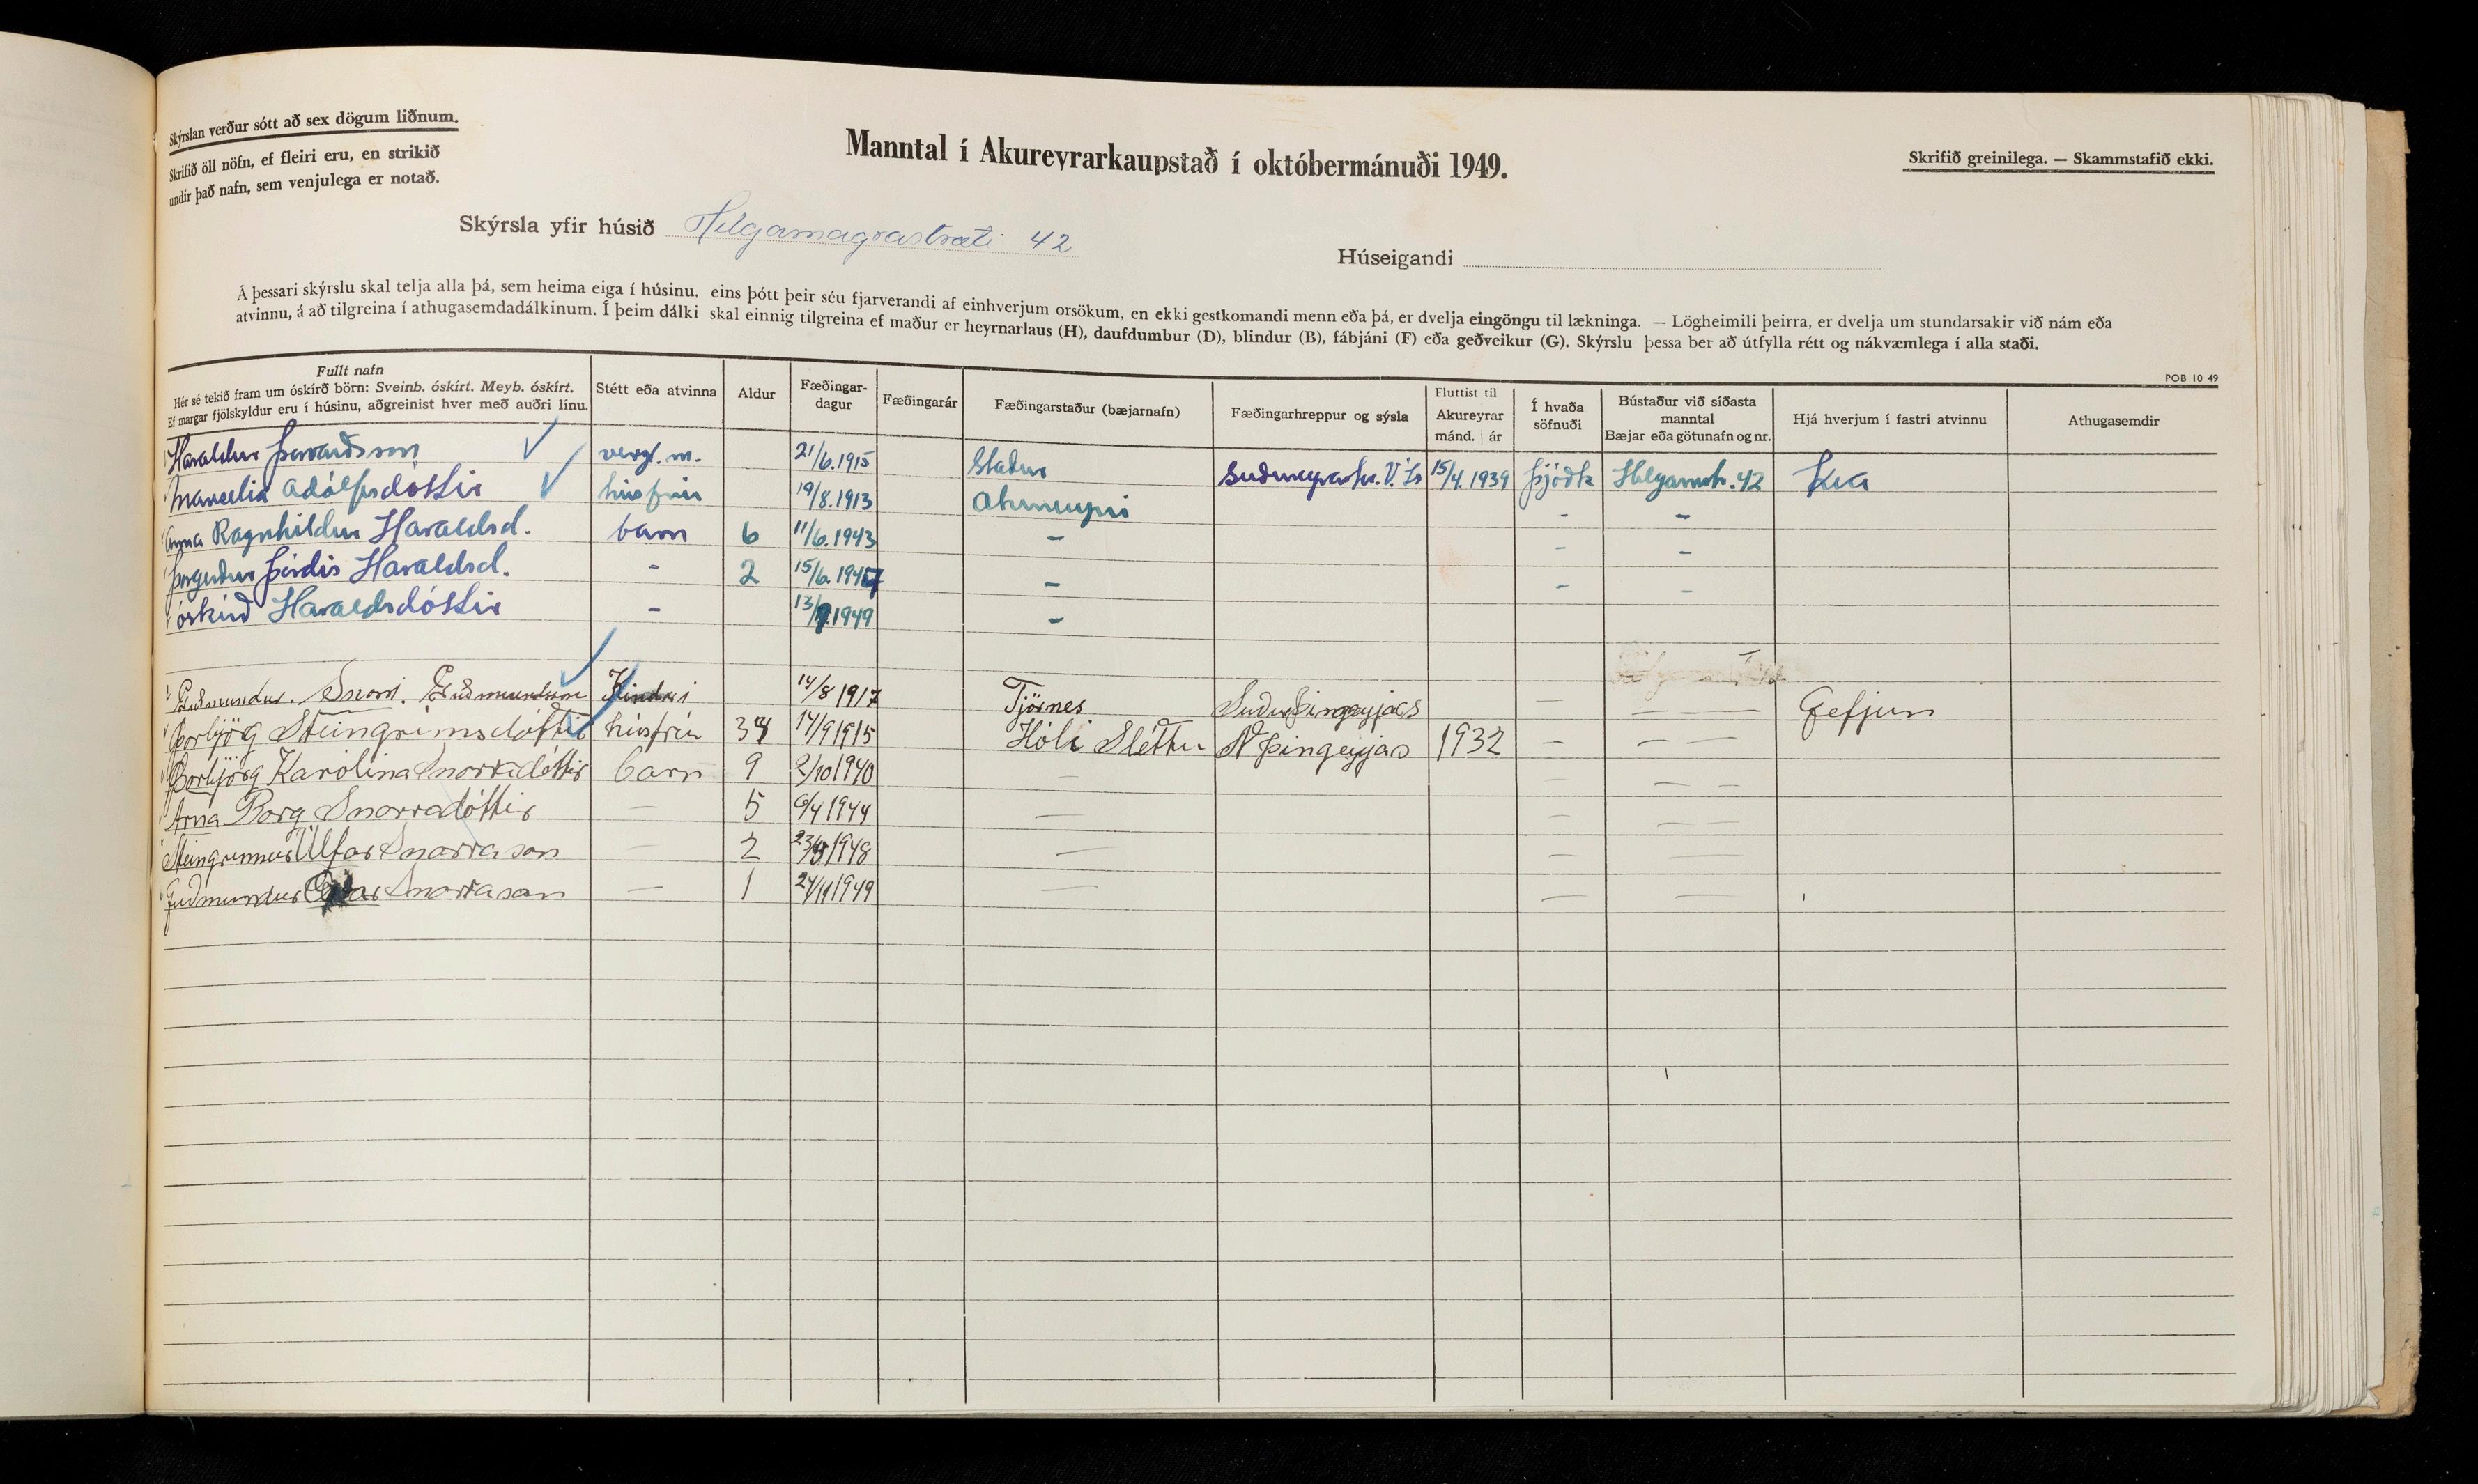 Skýrslan verður sótt að sex dögum liðnum.
Skrifið öll nöfn, ef fleiri eru, en strikið
undir það nafn, sem venjulega er notað.
Manntal í Akureyrarkaupstað í októbermánuði 1949.
Skrifið greinilega. — Skammstafið ekki.
Skýrsla yfir húsið Helgamagrastræti 42
Húseigandi
Á þessari skýrslu skal telja alla þá, sem heima eiga í húsinu, eins þótt þeir séu fjarverandi af einhverjum orsökum, en ekki gestkomandi menn eða þá, er dvelja eingöngu til lækninga. — Lögheimili þeirra, er dvelja um stundarsakir við nám eða
atvinnu, á að tilgreina í athugasemdadálkinum. Í þeim dálki skal einnig tilgreina ef maður er heyrnarlaus (H), daufdumbur (D), blindur (B), fábjáni (F) eða geðveikur (G). Skýrslu þessa ber að útfylla rétt og nákvæmlega í alla staði.
POB 10 49
Fullt nafn
Hér sé tekið fram um óskírð börn: Sveinb. óskírt. Meyb. óskírt.
Ef margar fjölskyldur eru í húsinu, aðgreinist hver með auðri línu.
Stétt eða atvinna
Aldur
Fæðingar-
dagur
Fæðingarár
Fæðingarstaður (bæjarnafn)
Fæðingarhreppur og sýsla
Fluttist til
Akureyrar
mánd. ár
Í hvaða
söfnuði
Bústaður við síðasta
manntal
Bæjar eða götunafn og nr.
Hjá hverjum í fastri atvinnu
Athugasemdir
Haraldur Þorvarðsson verzl. m. 21/6. 1915 Staður Suðureyrarhr. V. Ís 15/4. 1939 Þjóðk Helgamstr. 42 Kea
Marselía Adólfsdóttir húsfrú 19/8. 1913 Akureyri - -
Anna Ragnhildur Haraldsd. barn 6 11/6. 1943 - - -
Þorgerður Þórdís Haraldsd. - 2 15/6. 1947 - - -
óskírð Haraldsdóttir - 13/9. 1949 -
Guðmundur. Snorri. Guðmundsson Kindari 14/8 1917 Tjörnes Suðurþingeyjars — — — — Gefjun
Þorbjörg Steingrímsdóttir húsfrú 34 14/9 1915 Hóli Sléttu N Þingeyjas 1932 — — — —
Þorbjörg Karólína Snorradóttir barn 9 2/10 1940 — — — —
Arna Borg Snorradóttir — 5 6/4 1944 — — — —
Steingrímur Úlfar Snorrason — 2 23/9 1948 — — —
Guðmundur Snorrason — 1 24/11 1949 — — —